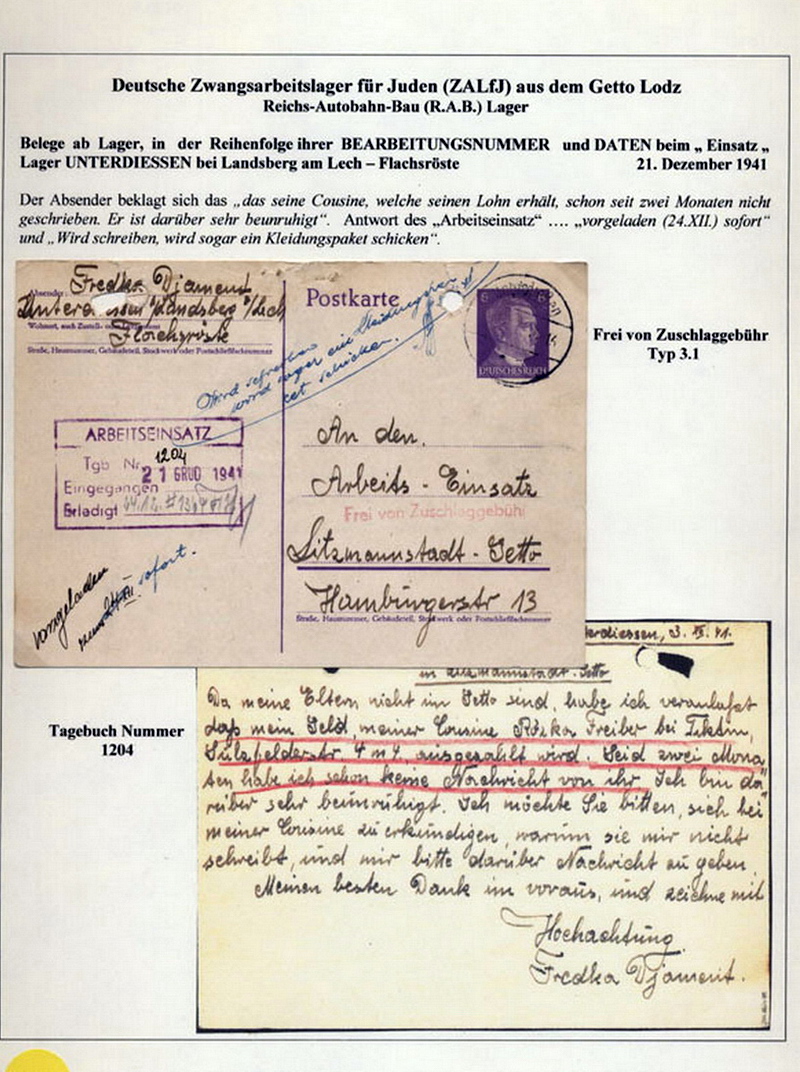 Deutsche Zwangsarbeitslager für Juden (ZALfJ) aus dem Getto Lodz
Reichs-Autobahn-Bau (R.A.B.) Lager
Belege ab Lager, in der Reihenfolge ihrer BEARBEITUNGSNUMMER und DATEN beim „ Einsatz „
Lager UNTERDIESSEN bei Landsberg am Lech – Flachsröste 21. Dezember 1941
Der Absender beklagt sich das „das seine Cousine, welche seinen Lohn erhält, schon seit zwei Monaten nicht
geschrieben. Er ist darüber sehr beunruhigt“. Antwort des „Arbeitseinsatz“ …. „vorgeladen (24.XII.) sofort“
und „Wird schreiben, wird sogar ein Kleidungspaket schicken“.
Fredka Djament
Absender:
Landsberg /Lech
Wohnort, auch Zustell-
Flachsröste
Straße, Hausnummer, Gebäudeteil, Stockwerk oder Postschließfachnummer
Postkarte
6 6
DEUTSCHES REICH
Wird schreiben
wird sogar ein Kleidungspa
ket schicken.
Frei von Zuschlaggebühr
Typ 3.1
ARBEITSEINSATZ
Tgb Nr. 1204
21 GRUD 1941
Eingegangen
Erledigt
An den.
Arbeits - Einsatz
Frei von Zuschlaggebühr
Litzmannstadt - Getto
Hamburgerstr 13
Straße, Hausnummer, Gebäudeteil, Stockwerk oder Postschließfachnummer
vorgeladen
sofort.
Tagebuch Nummer
1204
terdiessen, 3. XII. 41.
in Litzmannstadt - Getto
Da meine Eltern nicht im Getto sind, habe ich veranlaßt
daß mein Geld, meiner Cousine Rózka Freiber bei Tiktin,
Sulzfelderstr. 4 m 4, ausgezahlt wird. Seid zwei Mona
ten habe ich schon keine Nachricht von ihr Ich bin da"
rüber sehr beunruhigt. Ich möchte Sie bitten, sich bei
meiner Cousine zu erkundigen, warum sie mir nicht
schreibt, und mir bitte darüber Nachricht zu geben.
Meinen besten Dank im voraus, und zeichne mit
Hochachtung
Fredka Djament.